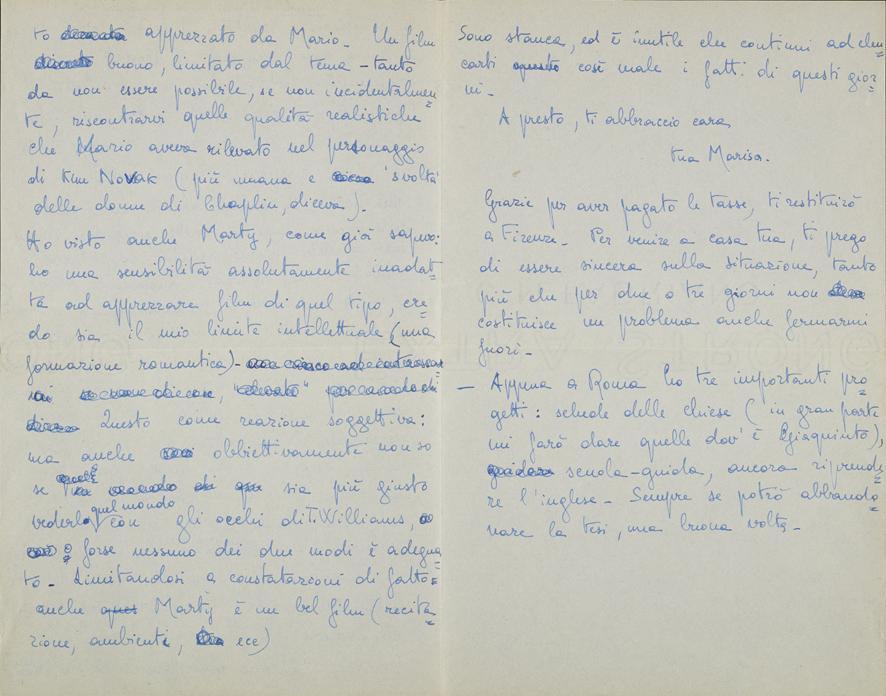 to apprezzato da Mario - Un film
buono, limitato dal tema - tanto
da non essere possibile, se non incidentalmen=
te, riscontrarvi quelle qualità realistiche
che Mario aveva rilevato nel personaggio
di Kim Novak (più umana e 'svolta'
delle donne di Chaplin, diceva).
Ho visto anche Marty, come già sapevo:
ho una sensibilità assolutamente inadat=
ta ad apprezzare film di quel tipo, cre=
do sia il mio limite intellettuale (una
formazione romantica) -
Questo come reazione soggettiva:
ma anche obbiettivamente non so
se quell sia più giusto
vederlo quel mondo con gli occhi di T. Williams,
o forse nessuno dei due modi è adegua=
to - Limitandosi a constatazioni di fatto=
anche Marty è un bel film (recita=
zione, ambiente, ecc)
Sono stanca, ed è inutile che continui ad elen=
carti così male i fatti di questi gior=
ni -
A presto, ti abbraccio cara
tua Marisa.
Grazie per aver pagato le tasse, ti restituirò
a Firenze - Per venire a casa tua, ti prego
di essere sincera sulla situazione, tanto
più che per due o tre giorni non
costituisce un problema anche fermarmi
fuori -
- Appena a Roma ho tre importanti pro=
getti: schede delle chiese (in gran parte
mi farò dare quelle dov'è Giaquinto),
scuola-guida, ancora riprende=
re l'inglese - Sempre se potrò abbando=
nare la tesi, una buona volta -